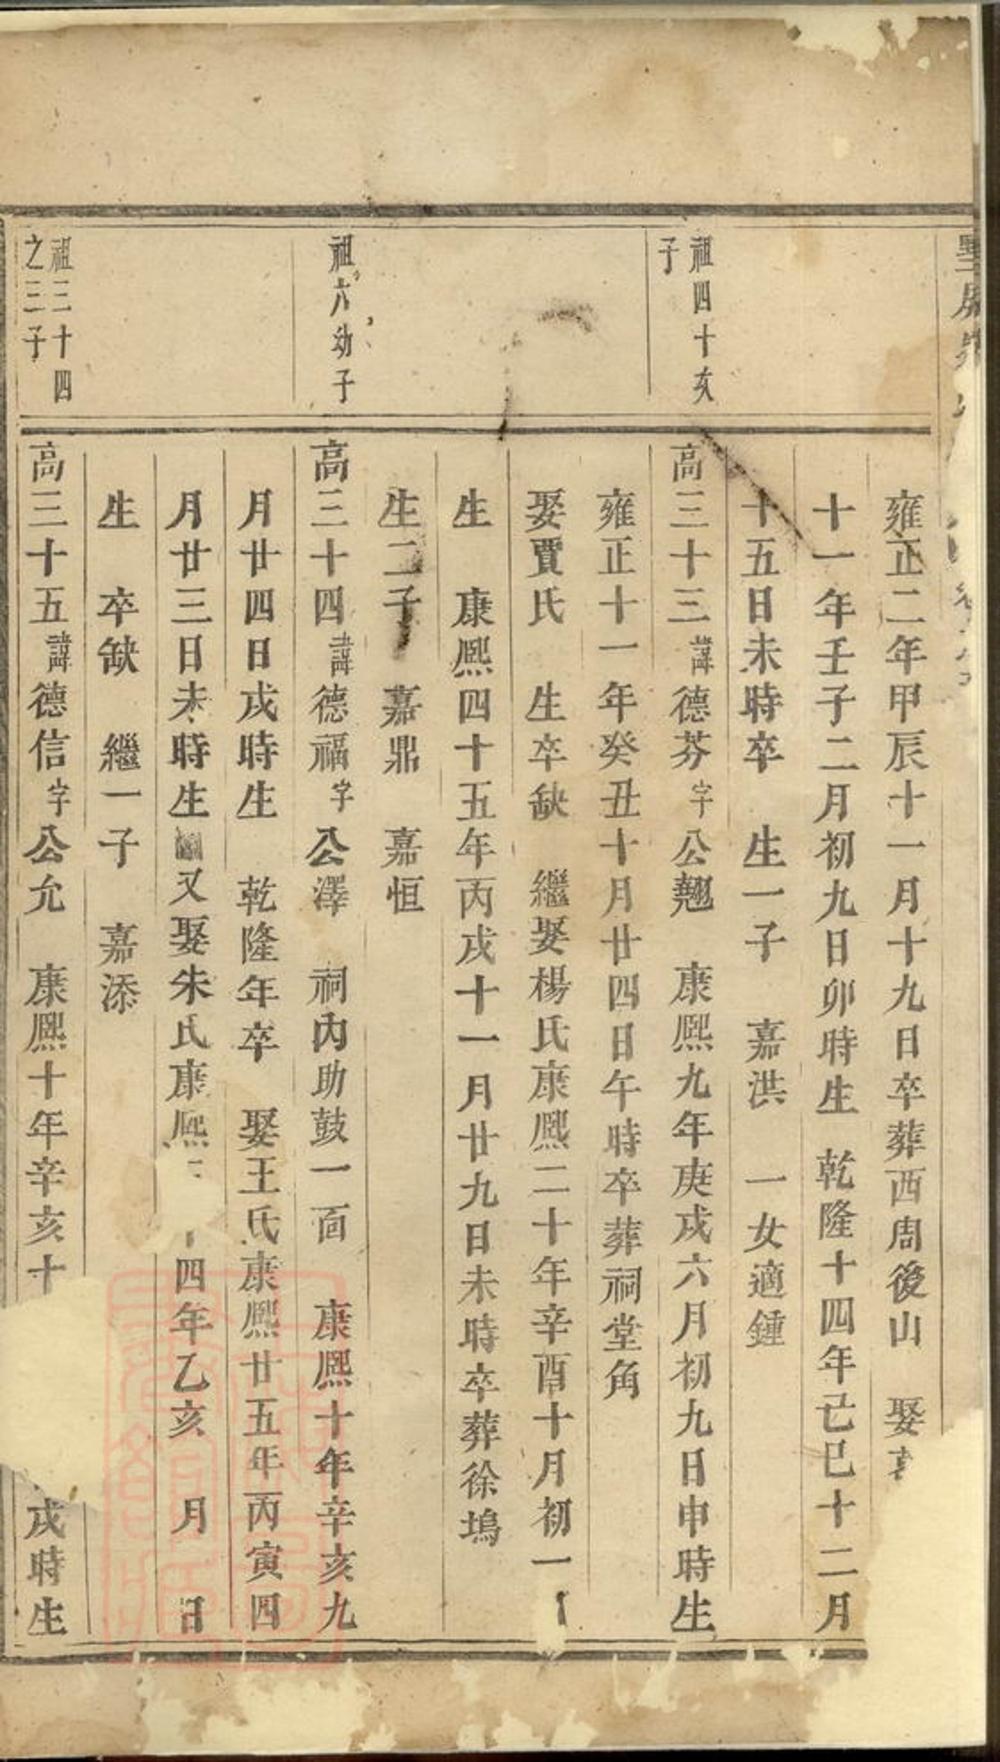 雍正二年甲辰十一月十九日卒葬西周後山　娶
十一年壬子二月初九日卯時生　乾隆十四年己巳十二月
十五日未時卒　生一子　嘉洪　一女適鍾
祖四十亥
子
高三十三諱德芬字公翹　康熙九年庚戌六月初九日申時生
雍正十一年癸丑十月廿四日午時卒葬祠堂角
娶賈氏　生卒缺　繼娶楊氏康熙二十年辛酉十月初一
生　康熙四十五年丙戌十一月廿九日未時卒葬徐塢
生二子　嘉鼎　嘉恒
祖六幼子
高三十四諱德福字公澤　祠內助鼓一面　康熙十年辛亥九
月廿四日戌時生　乾隆年卒　娶王氏康熙廿五年丙寅四
月廿三日未時生　又娶朱氏康熙　四年乙亥　月　日
生　卒缺　繼一子　嘉添
祖三十四
之三子
高三十五諱德信字公允　康熙十年辛亥十　戌時生